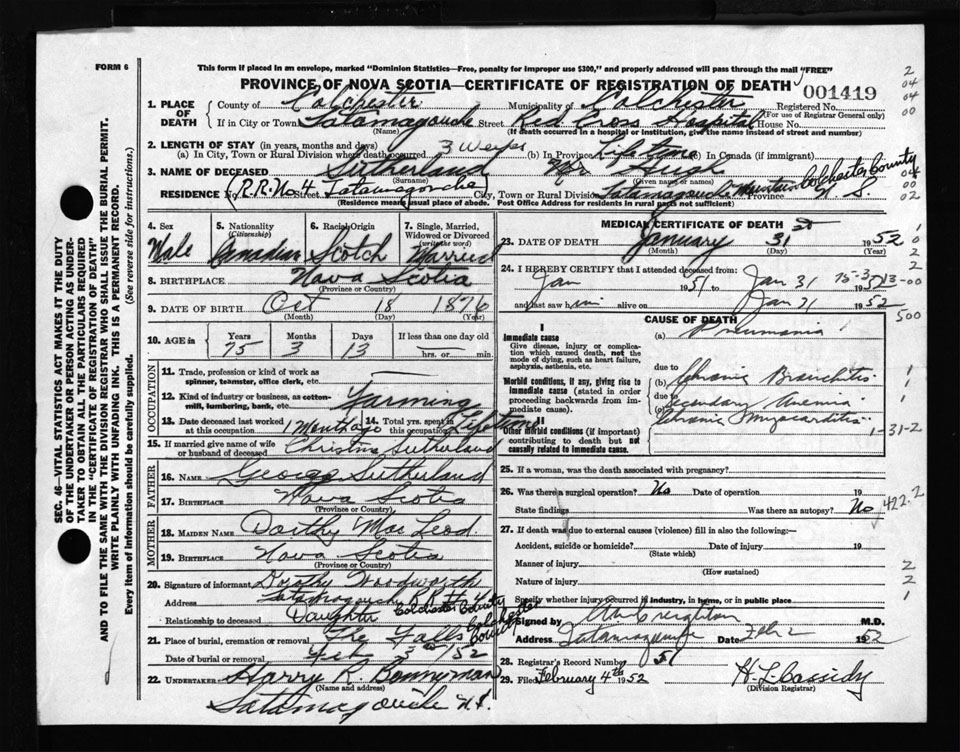 FORM 6
This form if placed in an envelope, marked "Dominion Statistics—Free, penalty for improper use $300," and properly addressed will pass through the mail "FREE"
PROVINCE OF NOVA SCOTIA—CERTIFICATE OF REGISTRATION OF DEATH
001419
1. PLACE OF DEATH
County of Colchester Municipality of Colchester Registered No.
(For use of Registrar General only)
If in City or Town Tatamagouche Street Red Cross Hospital House No.
(Name) (If death occurred in a hospital or institution, give the name instead of street and number)
2. LENGTH OF STAY (in years, months and days)
(a) In City, Town or Rural Division where death occurred 3 Weeks (b) in Province Life time (c) In Canada (if immigrant)
3. NAME OF DECEASED Sutherland Hugh
(Surname) (Given name or names)
RESIDENCE No. R.R. No. 4 Street Tatamagouche City, Town or Rural Division Tatamagouche Mountain Colchester County Province N.S.
(Residence means usual place of abode. Post Office Address for residents in rural parts not sufficient)
4. Sex 5. Nationality 6. Racial Origin 7. Single, Married, Widowed or Divorced
(Citizenship) (write the word)
Male Canadian Scotch Married
8. BIRTHPLACE Nova Scotia
(Province or Country)
9. DATE OF BIRTH Oct 18 1876
(Month) (Day) (Year)
10. AGE in Years Months Days If less than one day old
75 3 13 hrs. or min.
OCCUPATION
11. Trade, profession or kind of work as spinner, teamster, office clerk, etc.
12. Kind of industry or business, as cotton-mill, lumbering, bank, etc. Farming
13. Date deceased last worked at this occupation 1 Month ago 14. Total yrs. spent in this occupation Lifetime
15. If married give name of wife or husband of deceased Christina Sutherland
FATHER
16. NAME George Sutherland
17. BIRTHPLACE Nova Scotia
(Province or Country)
MOTHER
18. MAIDEN NAME Dorithy MacLeod
19. BIRTHPLACE Nova Scotia
(Province or Country)
20. Signature of informant Dorothy Woodworth
Address Tatamagouche RR # 4 Colchester County
Relationship to deceased Daughter
21. Place of burial, cremation or removal The Falls Colchester County
Date of burial or removal Feb 3rd /52
22. UNDERTAKER Harry R. Bonnyman
(Name and address)
Tatamagouche N.S.
MEDICAL CERTIFICATE OF DEATH
23. DATE OF DEATH January 31 1952
(Month) (Day) (Year)
24. I HEREBY CERTIFY that I attended deceased from:
Jan 1951 to Jan 31 1952
and last saw him alive on Jan 31 1952
75-3-13-00
CAUSE OF DEATH
I
Immediate cause
Give disease, injury or complication which caused death, not the mode of dying, such as heart failure, asphyxia, asthenia, etc.
(a) Pneumonia
due to
Morbid conditions, if any, giving rise to immediate cause (stated in order proceeding backwards from immediate cause).
(b) Chronic Bronchitis
due to
Secondary Anemia
II
Other morbid conditions (if important) contributing to death but not causally related to immediate cause.
Chronic Myocarditis
500
1-31-2
25. If a woman, was the death associated with pregnancy?
26. Was there a surgical operation? No Date of operation 19
State findings Was there an autopsy? No
422.2
27. If death was due to external causes (violence) fill in also the following:—
Accident, suicide or homicide? Date of injury 19
(State which)
Manner of injury
(How sustained)
Nature of injury
Specify whether injury occurred in industry, in home, or in public place
Signed by Creighton M.D.
Address Tatamagouche Date Feb 2 1952
28. Registrar's Record Number 51
29. Filed February 4th 1952 H. L. Cassidy
(Division Registrar)
SEC. 46—VITAL STATISTICS ACT MAKES IT THE DUTY OF THE UNDERTAKER OR PERSON ACTING AS UNDERTAKER TO OBTAIN ALL THE PARTICULARS REQUIRED IN THE "CERTIFICATE OF REGISTRATION OF DEATH" AND TO FILE THE SAME WITH THE DIVISION REGISTRAR WHO SHALL ISSUE THE BURIAL PERMIT.
WRITE PLAINLY WITH UNFADING INK. THIS IS A PERMANENT RECORD.
Every item of information should be carefully supplied. (See reverse side for instructions.)